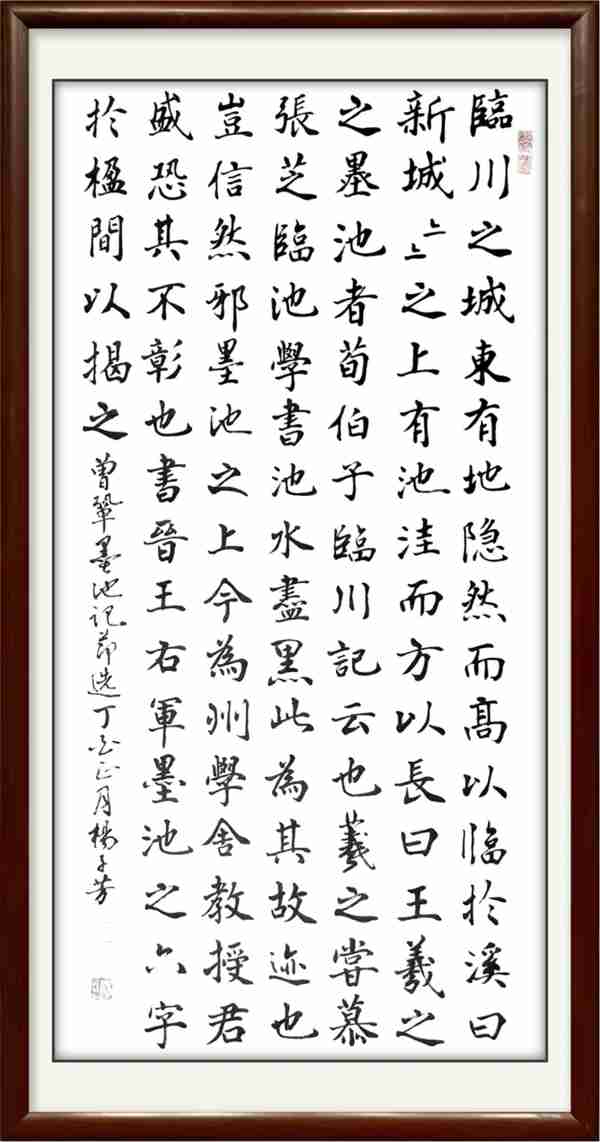 臨川之城東有地隐然而髙以临於溪曰
新城〻〻之上有池洼而方以長曰王羲之
之墨池者荀伯子臨川記云也羲之嘗慕
張芝臨池學書池水盡黑此為其故迹也
豈信然邪墨池之上今為州學舍教授君
盛恐其不彰也書晉王右軍墨池之六字
於楹間以揭之 曾鞏墨池記節选丁酉正月楊子芳